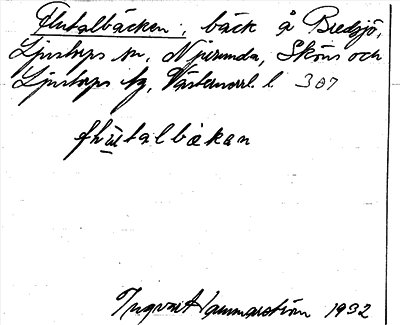 Flutalbäcken, bäck å Bredsjö,
Ljustorps sn, Njurunda, Sköns och
Ljustorps tg, Västernorrl. l 307
Ingvar Hammarström 1932